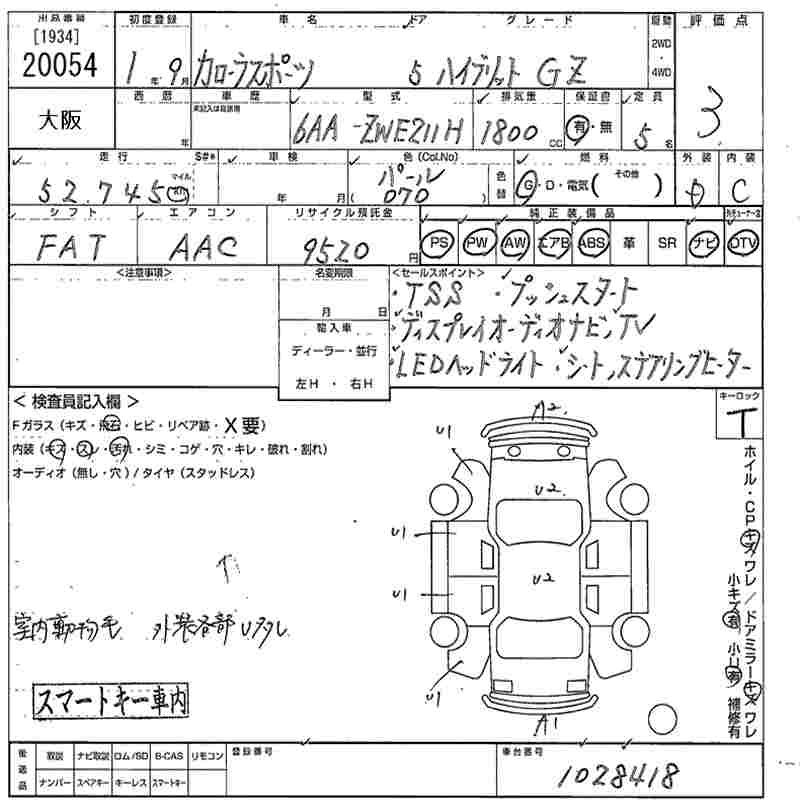 出品番号 初度登録 車名 ドア グレード 駆動 評価点
[1934]
20054
1年 9月 カローラスポーツ 5 ハイブリット GZ 2WD・4WD 3
大阪
西暦 車歴 型式 排気量 保証書 定員
未記入は自家用
年 6AA-ZWE211H 1800cc 有・無 5名
走行 S#* 車検 色(Col.No) 燃料 外装 内装
52,745 マイル 年 月 パール (070 色替 G・D・電気( その他 ) C
シフト エアコン リサイクル預託金 純正装備品
FAT AAC 9520円 PS PW AW エアB ABS 革 SR ナビ DTV
<注意事項> 名変期限 <セールスポイント>
月 日
・TSS ・プッシュスタート
輸入車
ディーラー・並行
左H・右H
・ディスプレイオーディオナビ,TV
・LEDヘッドライト・シート,ステアリングヒーター
< 検査員記入欄 >
Fガラス(キズ・飛石・ヒビ・リペア跡・X要)
内装(キズ・スレ・汚れ・シミ・コゲ・穴・キレ・破れ・割れ)
オーディオ(無し・穴)/タイヤ(スタッドレス)
キーロック
T
A2
U1
U2
U1
U2
U1
U1
A1
ホイル・CPキズワレ/ドアミラーキズワレ
小キズ有 小U有 補修有
室内動物毛 外装各部Uタタレ
スマートキー車内
後送品 取説 ナビ取説 ロム/SD B-CAS リモコン 登録番号 車台番号
ナンバー スペアキー キーレス スマートキー
1028418